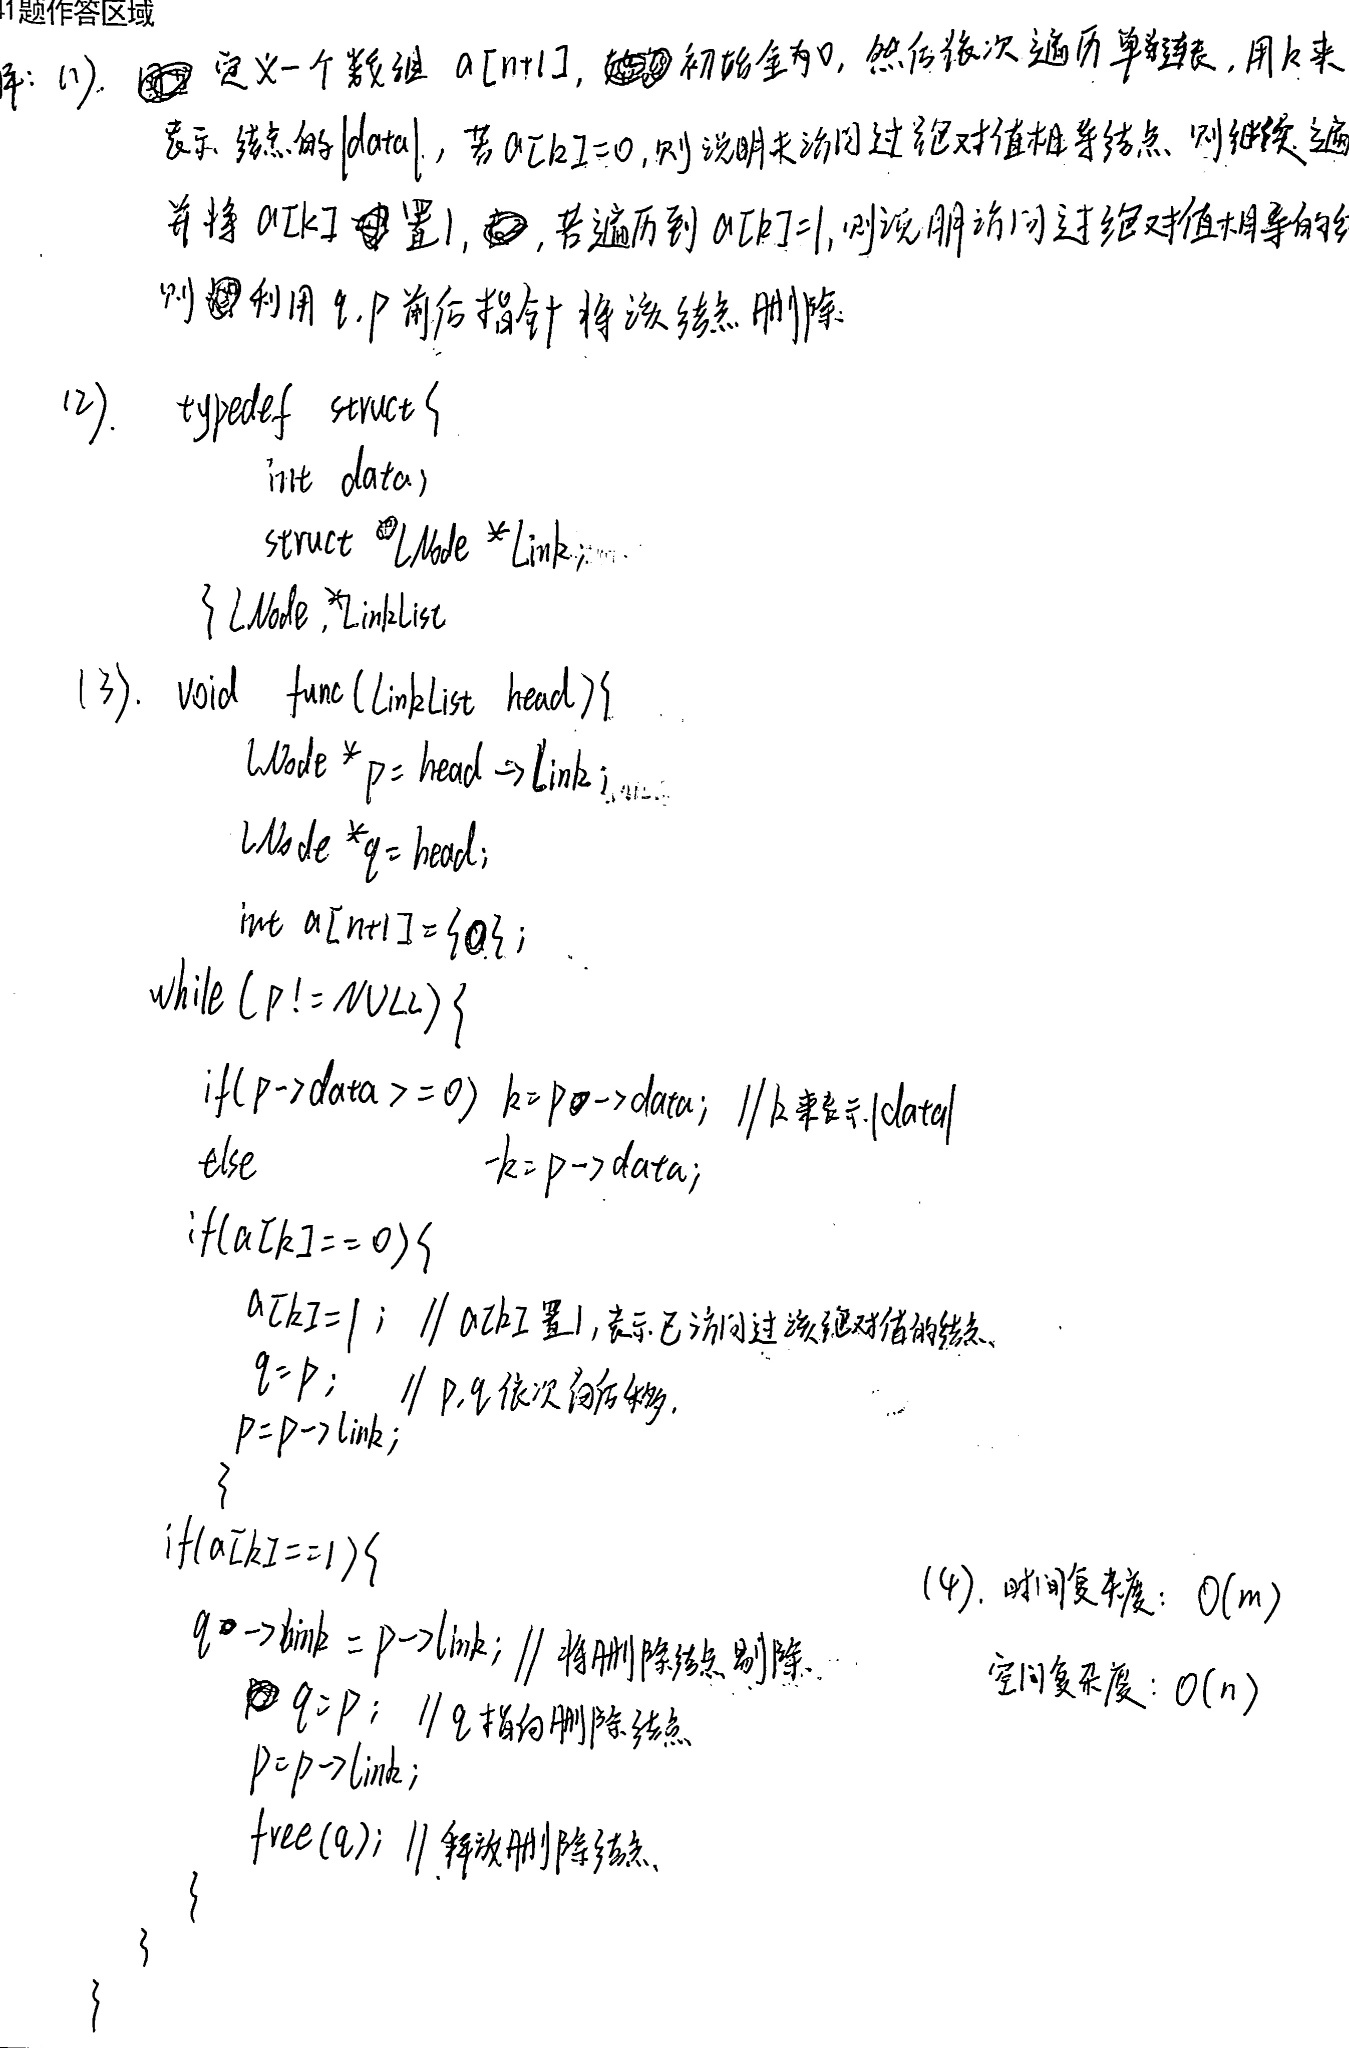 41题作答区域
解: (1). 定义一个数组 a[n+1], 初始全为0, 然后依次遍历单链表, 用k来
表示结点的|data|, 若a[k]=0, 则说明未访问过绝对值相等结点、则继续遍
并将a[k]置1, 若遍历到a[k]=1, 则说明访问过绝对值相等的结
则利用q.p前后指针将该结点删除.
(2). typedef struct{
int data;
struct LNode *Link;
}LNode,*LinkList
(3). void func(LinkList head){
LNode *p=head->Link;
LNode *q=head;
int a[n+1]={0};
while(p!=NULL){
if(p->data>=0) k=p->data; //k来表示|data|
else -k=p->data;
if(a[k]==0){
a[k]=1; //a[k]置1,表示已访问过该绝对值的结点、
q=p; //p,q依次向后移.
p=p->link;
}
if(a[k]==1){
(4). 时间复杂度: O(m)
q->link=p->link; //将删除结点剔除.
空间复杂度: O(n)
q=p; //q指向删除结点
p=p->link;
free(q); //释放删除结点、
}
}
}